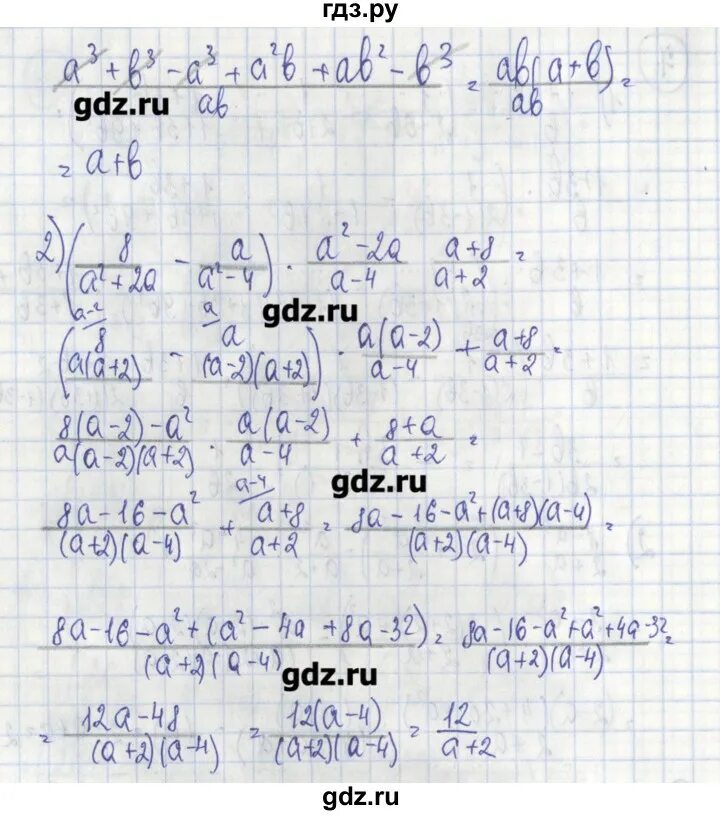 гдз.ру
a³ + b³ - a³ + a²b + ab² - b³ / ab = ab(a+b) / ab =
gdz.ru
= a+b
2) (8 / a²+2a - a / a²-4) · a²-2a / a-4 a+8 / a+2 =
gdz.ru
a-2 a
(8 / a(a+2) - a / (a-2)(a+2)) · a(a-2) / a-4 + a+8 / a+2 =
8(a-2)-a² / a(a-2)(a+2) · a(a-2) / a-4 + 8+a / a+2 =
gdz.ru
a-4
8a-16-a² / (a+2)(a-4) + a+8 / a+2 = 8a-16-a²+(a+8)(a-4) / (a+2)(a-4) =
8a-16-a²+(a²-4a+8a-32) / (a+2)(a-4) = 8a-16-a²+a²+4a-32 / (a+2)(a-4) =
gdz.ru
= 12a-48 / (a+2)(a-4) = 12(a-4) / (a+2)(a-4) = 12 / a+2
gdz.ru